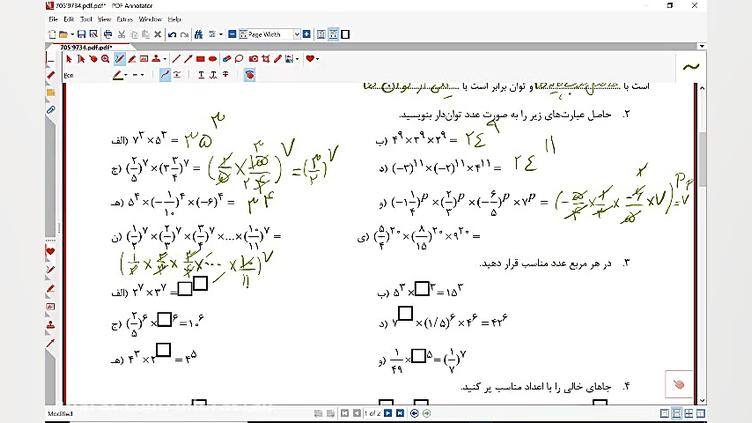 705'9734.pdf.pdf* - PDF Annotator
File Edit Tool View Document Extras Window Help
Page Width
705'9734.pdf.pdf*
Pen
است با ... و توان برابر است با ...
۲. حاصل عبارت‌های زیر را به صورت عدد توان‌دار بنویسید.
الف) ۷^۳ × ۵^۳ = ۳۵^۳
ب) ۴^۹ × ۳^۹ × ۲^۹ = ۲۴^۹
ج) (۲/۵)^۷ × (۳ ۳/۴)^۷ = (۲/۵ × ۱۵/۴)^۷ = (۳/۲)^۷
د) (-۳)^۱۱ × (-۲)^۱۱ × ۴^۱۱ = ۲۴^۱۱
هـ) ۵^۴ × (-۱/۱۰)^۴ × (-۶)^۴ = ۳^۴
و) (-۱ ۱/۴)^p × (۲/۳)^p × (-۶/۵)^p × ۷^p = (-۵/۴ × ۲/۳ × -۶/۵ × ۷)^p = ۷^p
ن) (۱/۲)^۷ × (۲/۳)^۷ × (۳/۴)^۷ × ... × (۱۰/۱۱)^۷ =
ی) (۵/۴)^۲۰ × (۸/۱۵)^۲۰ × ۹^۲۰ =
(۱/۲ × ۲/۳ × ۳/۴ × ... × ۱۰/۱۱)^۷
۳. در هر مربع عدد مناسب قرار دهید.
الف) ۲^۷ × ۳^۷ = □^□
ب) ۵^۳ × □^۳ = ۱۵^۳
ج) (۲/۵)^۶ × □^۶ = ۱۰^۶
د) ۷^□ × (۱/۵)^۶ × ۴^۶ = ۴۲^۶
هـ) ۴^۳ × ۲^□ = ۴^۵
و) ۱/۴۹ × □^۵ = (۱/۷)^۷
۴. جاهای خالی را با اعداد مناسب پر کنید.
Modified
1 of 2